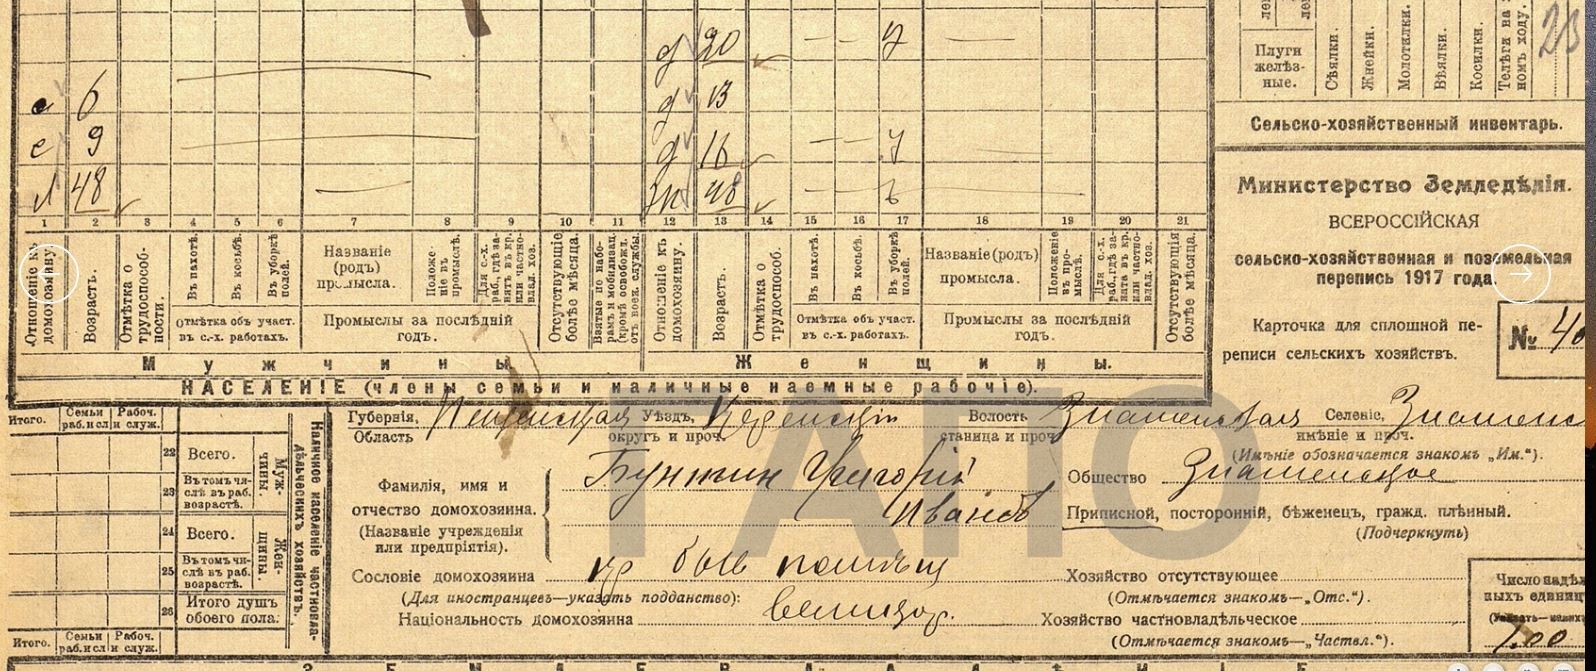 д 20 — — 7 —
с 6
д 13
с 9
д 16 — — 7 —
48
ж 48 — —
1 2 3 4 5 6 7 8 9 10 11 12 13 14 15 16 17 18 19 20 21
Отношеніе къ домохозяину.
Возрастъ.
Отмѣтка о трудоспособности.
Въ пахотѣ.
Въ косьбѣ.
Въ уборкѣ полей.
Отмѣтка объ участ. въ с.-х. работахъ.
Названіе (родъ) промысла.
Положеніе въ промыслѣ.
Для с.-х. раб., гдѣ занятъ въ кр. или частновлад. хоз.
Промыслы за послѣдній годъ.
Отсутствующіе болѣе мѣсяца.
Взятые по наборамъ и мобилизац. (кромѣ освобожд. отъ воен. службы).
Отношеніе къ домохозяину.
Возрастъ.
Отмѣтка о трудоспособ.
Въ пахотѣ.
Въ косьбѣ.
Въ уборкѣ полей.
Отмѣтка объ участ. въ с.-х. работахъ.
Названіе (родъ) промысла.
Положеніе въ промыслѣ.
Для с.-х. раб., гдѣ заняты въ кр. или частновлад. хоз.
Промыслы за послѣдній годъ.
Отсутствующія болѣе мѣсяца.
Мужчины Женщины.
НАСЕЛЕНІЕ (члены семьи и наличные наемные рабочіе).
Плуги желѣзные.
Сѣялки.
Жнейки.
Молотилки.
Вѣялки.
Косилки.
Телѣги на
номъ ходу.
23
Сельско-хозяйственный инвентарь.
Министерство Земледѣлія.
ВСЕРОССІЙСКАЯ
сельско-хозяйственная и поземельная
перепись 1917 года.
Карточка для сплошной пе-
реписи сельскихъ хозяйствъ.
№ 40
Итого. Семьи раб. исл. Рабоч. и служ.
22 Всего.
23 Въ томъ числѣ въ раб. возрастѣ.
Мужчины.
24 Всего.
25 Въ томъ числѣ въ раб. возрастѣ.
Женщины.
26 Итого душъ обоего пола.
Итого. Семьи раб. исл. Рабоч. и служ.
Наличное населеніе частновладѣльческихъ хозяйствъ.
Губернія, Область Пензенская Уѣздъ, округъ и проч. Керенскій Волость станица и проч. Знаменская Селеніе, имѣніе и проч. Знаменс
(Имѣніе обозначается знакомъ „Им.“).
Фамилія, имя и
отчество домохозяина. Бунтин Григорій
Иванов
(Названіе учрежденія
или предпріятія).
Общество Знаменское
Приписной, посторонній, бѣженецъ, гражд. плѣнный.
(Подчеркнуть)
Сословіе домохозяина кр быв помѣщ
(Для иностранцевъ—указать подданство):
Національность домохозяина великор.
Хозяйство отсутствующее
(Отмѣчается знакомъ—„Отс.“).
Хозяйство частновладѣльческое
(Отмѣчается знакомъ—„Частвл.“).
Число надѣл
ныхъ единиц
7,00
ГАПО